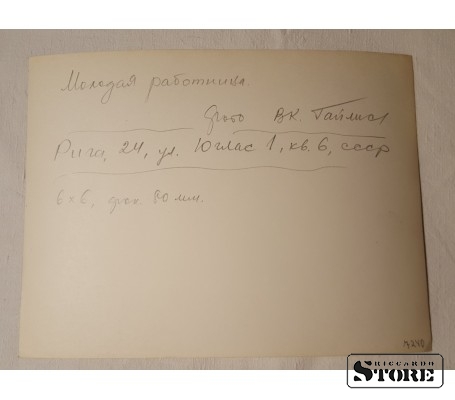 Молодая работница
фото ВК. Гайлис
Рига, 24, ул. Юглас 1, кв. 6, СССР
6 x 6, фок. 80 мм.
RICCARDO
STORE